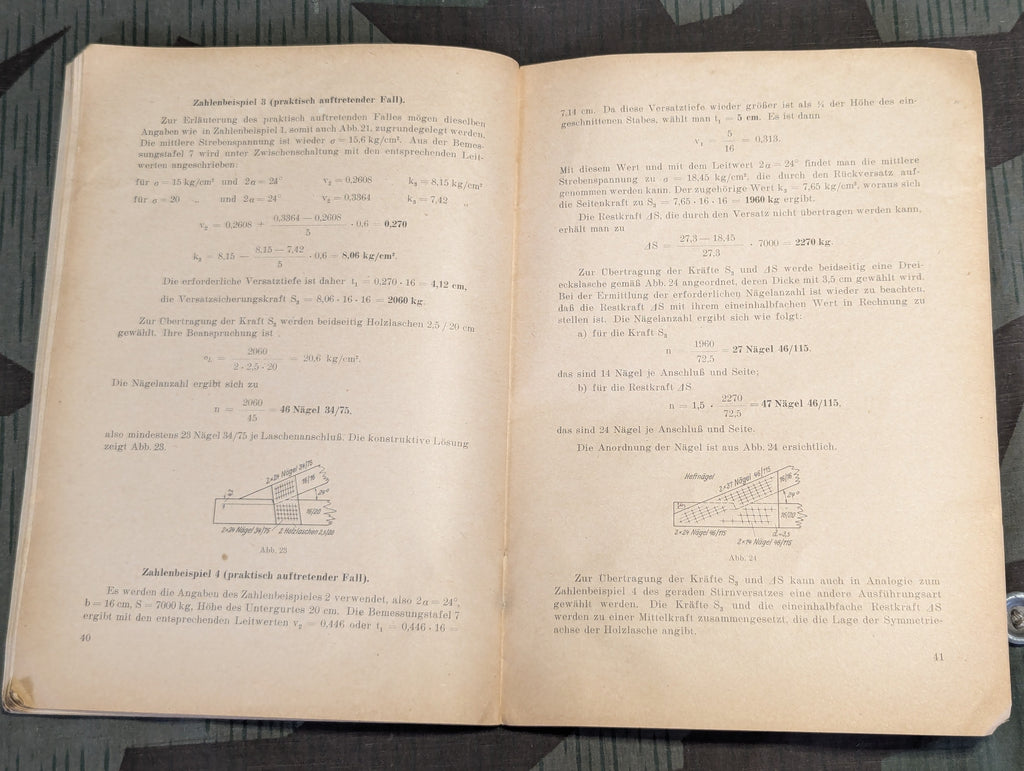 Zahlenbeispiel 3 (praktisch auftretender Fall).
Zur Erläuterung des praktisch auftretenden Falles mögen dieselben
Angaben wie in Zahlenbeispiel 1, somit auch Abb. 21, zugrundegelegt werden.
Die mittlere Strebenspannung ist wieder σ = 15,6 kg/cm². Aus der Bemes-
sungstafel 7 wird unter Zwischenschaltung mit den entsprechenden Leit-
werten angeschrieben:
für σ = 15 kg/cm² und 2α = 24° v₂ = 0,2608 k₃ = 8,15 kg/cm²
für σ = 20 „ und 2α = 24° v₂ = 0,3364 k₃ = 7,42 „
v₂ = 0,2608 + (0,3364 — 0,2608) / 5 · 0,6 = 0,270
k₃ = 8,15 — (8,15 — 7,42) / 5 · 0,6 = 8,06 kg/cm².
Die erforderliche Versatztiefe ist daher t₁ = 0,270 · 16 = 4,12 cm,
die Versatzsicherungskraft S₃ = 8,06 · 16 · 16 = 2060 kg.
Zur Übertragung der Kraft S₃ werden beidseitig Holzlaschen 2,5 / 20 cm
gewählt. Ihre Beanspruchung ist
σL = 2060 / (2 · 2,5 · 20) = 20,6 kg/cm².
Die Nägelanzahl ergibt sich zu
n = 2060 / 45 = 46 Nägel 34/75.
also mindestens 23 Nägel 34/75 je Laschenanschluß. Die konstruktive Lösung
zeigt Abb. 23.
2×24 Nägel 34/75
16/16
24°
16/20
2×24 Nägel 34/75 2 Holzlaschen 2,5/20
Abb. 23
Zahlenbeispiel 4 (praktisch auftretender Fall).
Es werden die Angaben des Zahlenbeispieles 2 verwendet, also 2α = 24°,
b = 16 cm, S = 7000 kg, Höhe des Untergurtes 20 cm. Die Bemessungstafel 7
ergibt mit den entsprechenden Leitwerten v₂ = 0,446 oder t₁ = 0,446 · 16 =
40
7,14 cm. Da diese Versatztiefe wieder größer ist als ¼ der Höhe des ein-
geschnittenen Stabes, wählt man t₁ = 5 cm. Es ist dann
v₁ = 5 / 16 = 0,313.
Mit diesem Wert und mit dem Leitwert 2α = 24° findet man die mittlere
Strebenspannung zu σ = 18,45 kg/cm², die durch den Rückversatz auf-
genommen werden kann. Der zugehörige Wert k₃ = 7,65 kg/cm², woraus sich
die Seitenkraft zu S₃ = 7,65 · 16 · 16 = 1960 kg ergibt.
Die Restkraft ΔS, die durch den Versatz nicht übertragen werden kann,
erhält man zu
ΔS = (27,3 — 18,45) / 27,3 · 7000 = 2270 kg.
Zur Übertragung der Kräfte S₃ und ΔS werde beidseitig eine Drei-
eckslasche gemäß Abb. 24 angeordnet, deren Dicke mit 3,5 cm gewählt wird.
Bei der Ermittlung der erforderlichen Nägelanzahl ist wieder zu beachten,
daß die Restkraft ΔS mit ihrem eineinhalbfachen Wert in Rechnung zu
stellen ist. Die Nägelanzahl ergibt sich wie folgt:
a) für die Kraft S₃
n = 1960 / 72,5 = 27 Nägel 46/115.
das sind 14 Nägel je Anschluß und Seite;
b) für die Restkraft ΔS
n = 1,5 · 2270 / 72,5 = 47 Nägel 46/115,
das sind 24 Nägel je Anschluß und Seite.
Die Anordnung der Nägel ist aus Abb. 24 ersichtlich.
Heftnägel
2×37 Nägel 46/115
16/16
24°
16/20
2×24 Nägel 46/115
d=3,5
2×14 Nägel 46/115
Abb. 24
Zur Übertragung der Kräfte S₃ und ΔS kann auch in Analogie zum
Zahlenbeispiel 4 des geraden Stirnversatzes eine andere Ausführungsart
gewählt werden. Die Kräfte S₃ und die eineinhalbfache Restkraft ΔS
werden zu einer Mittelkraft zusammengesetzt, die die Lage der Symmetrie-
achse der Holzlasche angibt.
41